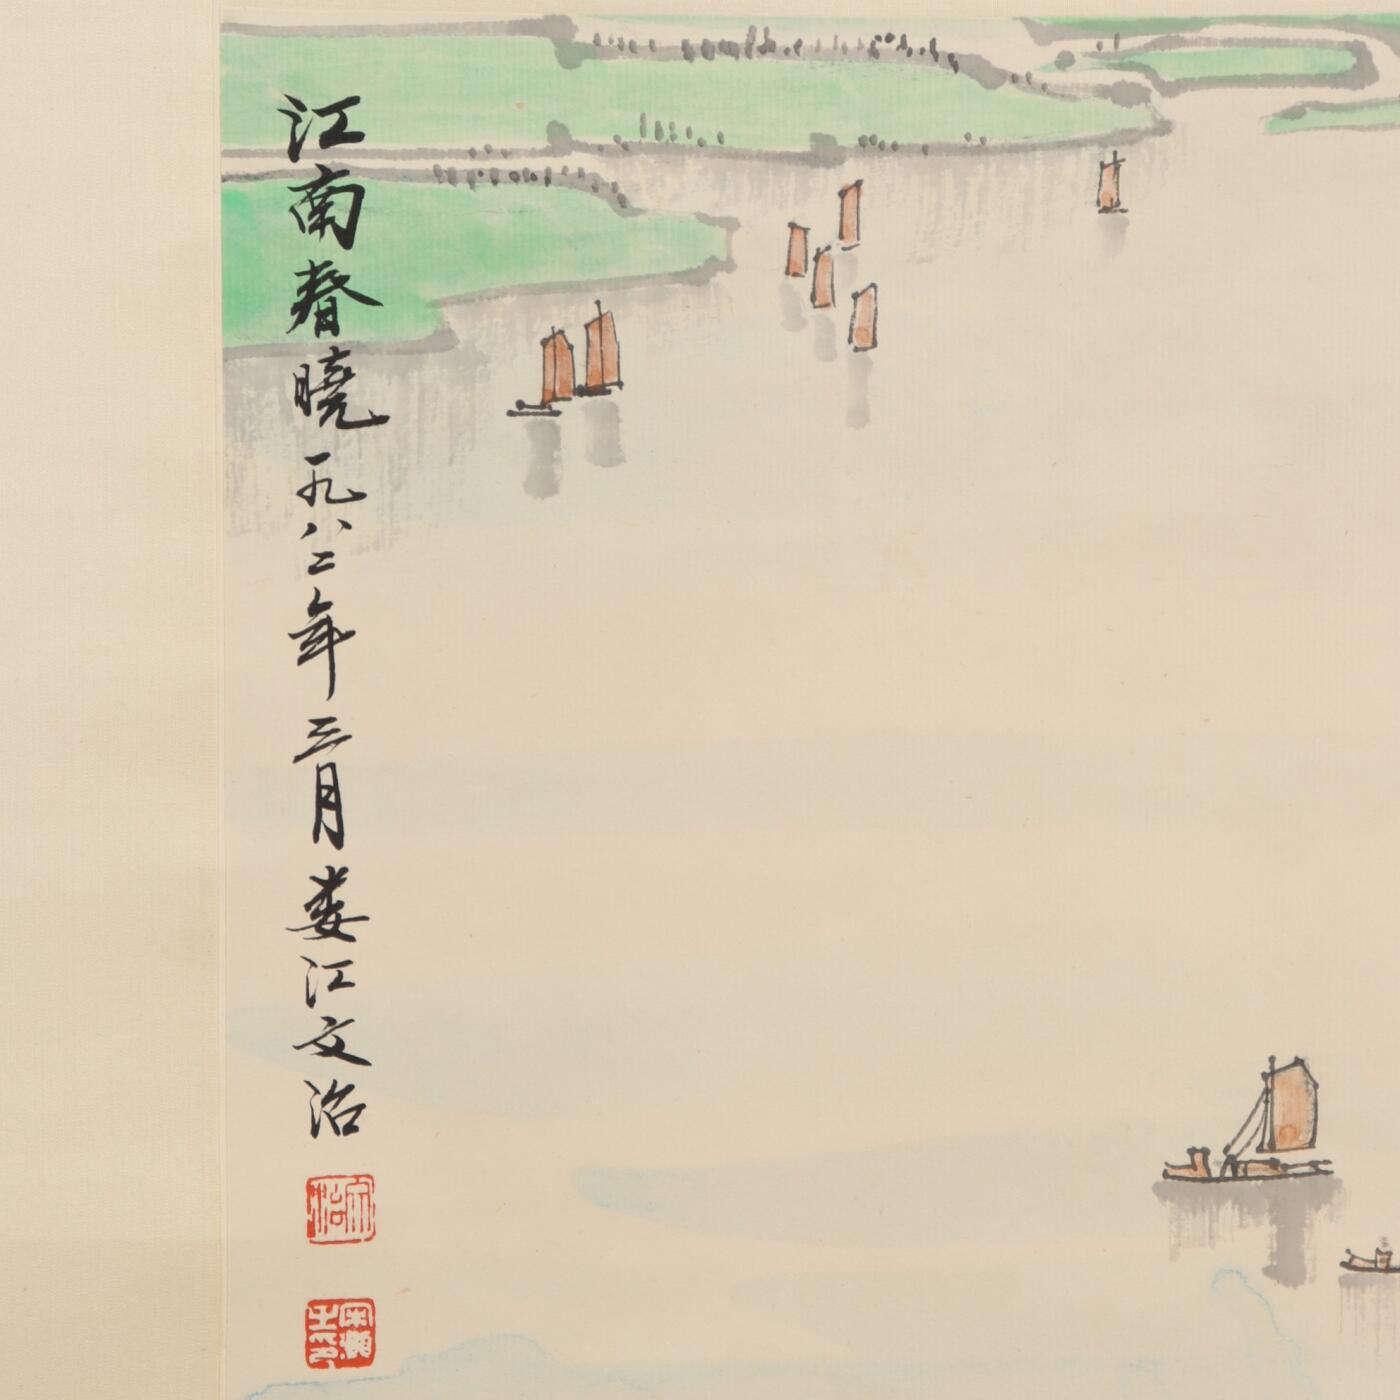 江南春曉一九八二年三月婁江文治